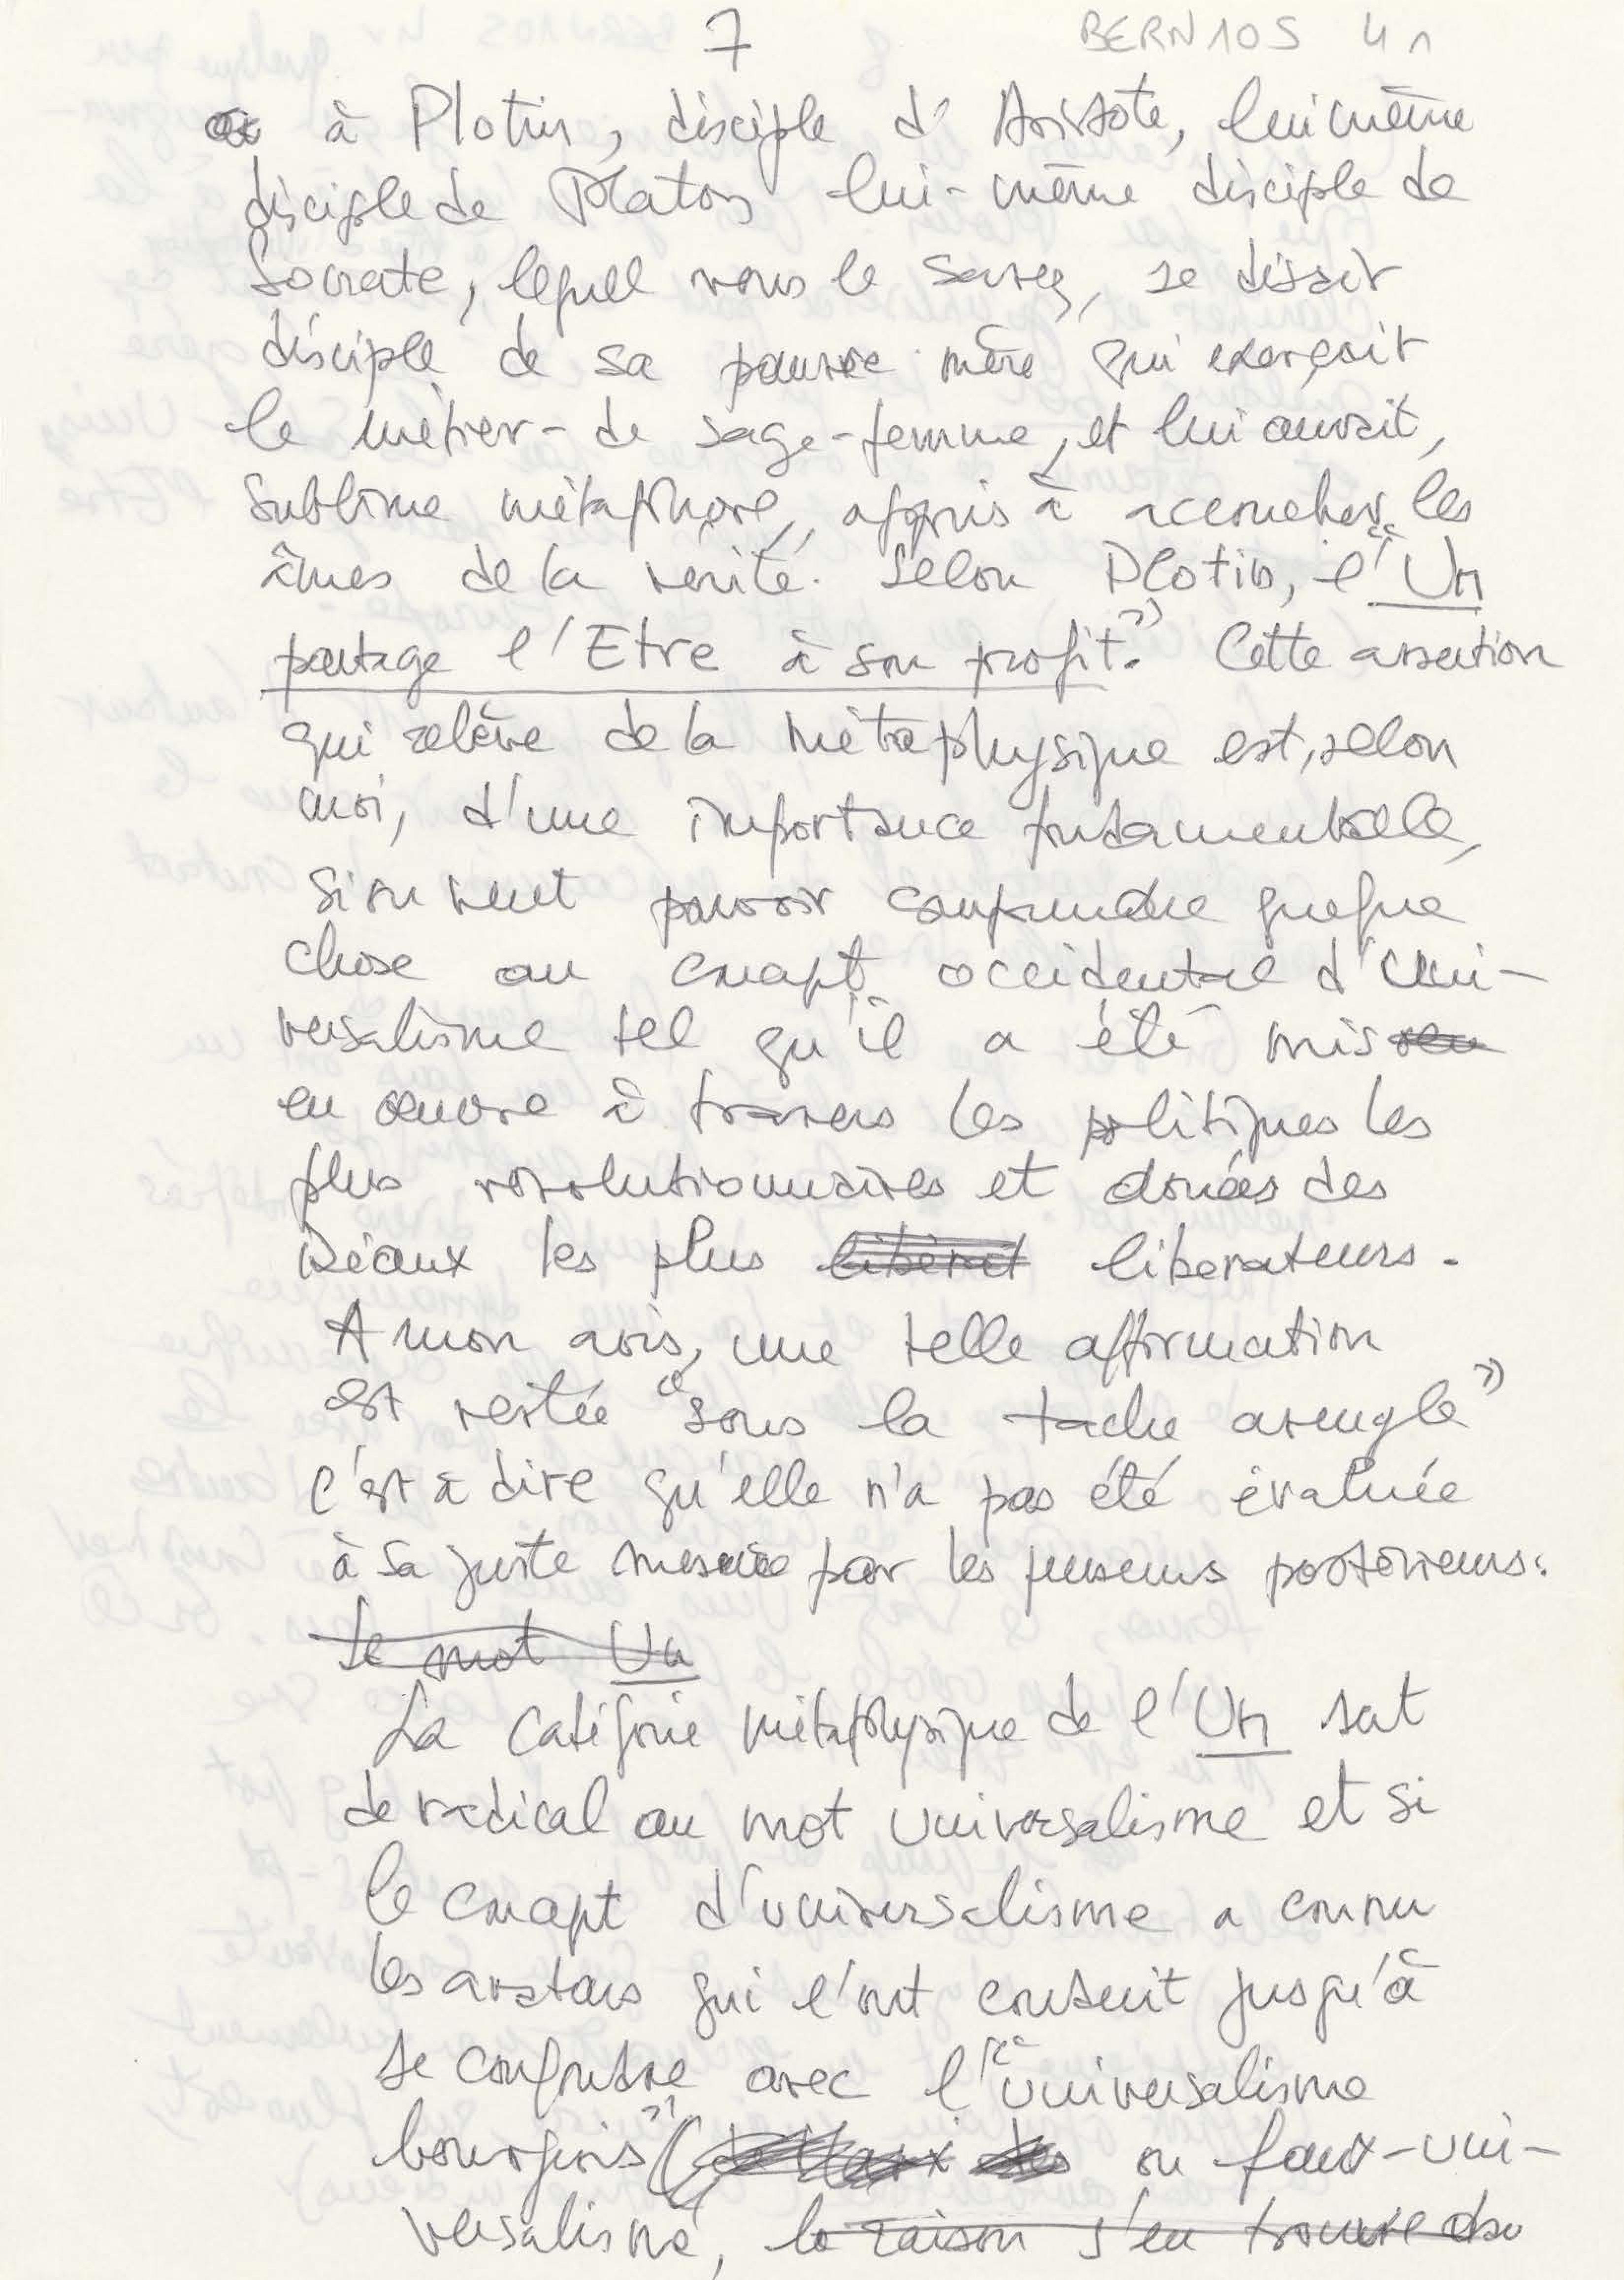 7 BERN105 41
à Plotin, disciple d'Aristote, lui même
disciple de Platon lui-même disciple de
Socrate, lequel vous le savez, se disait
disciple de sa pauvre mère qui exerçait
le métier - de sage-femme, et lui aurait,
sublime métaphore, appris à accoucher les
âmes de la vérité. Selon Plotin, l'"Un
partage l'Etre à son profit." Cette assertion
qui relève de la métaphysique est, selon
moi, d'une importance fondamentale,
si on veut pouvoir comprendre quelque
chose au concept occidental d'Uni-
versalisme tel qu'il a été mis
en œuvre à travers les politiques les
plus révolutionnaires et douées des
idéaux les plus libérat libérateurs.
A mon avis, une telle affirmation
est restée "sous la tache aveugle"
c'est à dire qu'elle n'a pas été évaluée
à sa juste mesure par les penseurs postérieurs.
Le mot Un
La catégorie métaphysique de l'Un sert
de radical au mot universalisme et si
le concept d'universalisme a connu
les avatars qui l'ont conduit jusqu'à
se confondre avec l'"universalisme
bourgeois" ( ou faux-uni-
versalisme, la raison s'en trouve